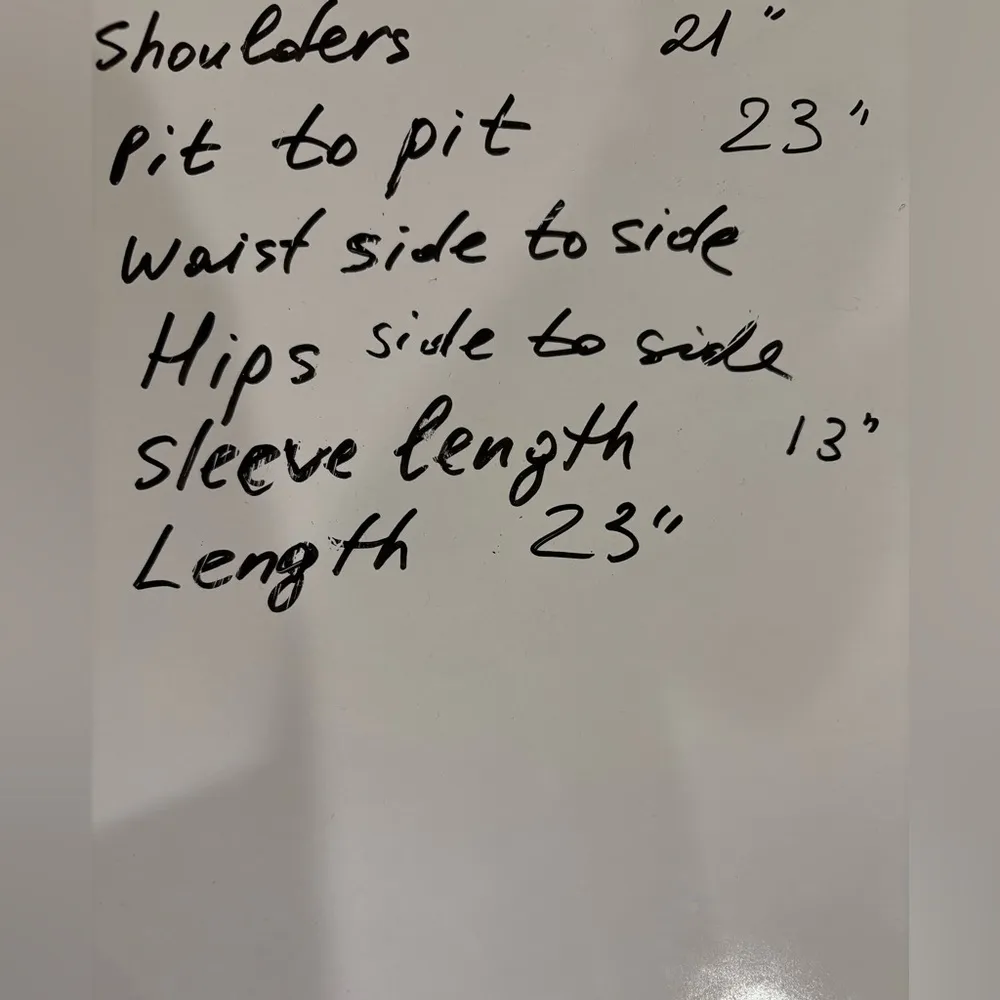 Shoulders 21"
Pit to pit 23"
Waist side to side
Hips side to side
Sleeve length 13"
Length 23"